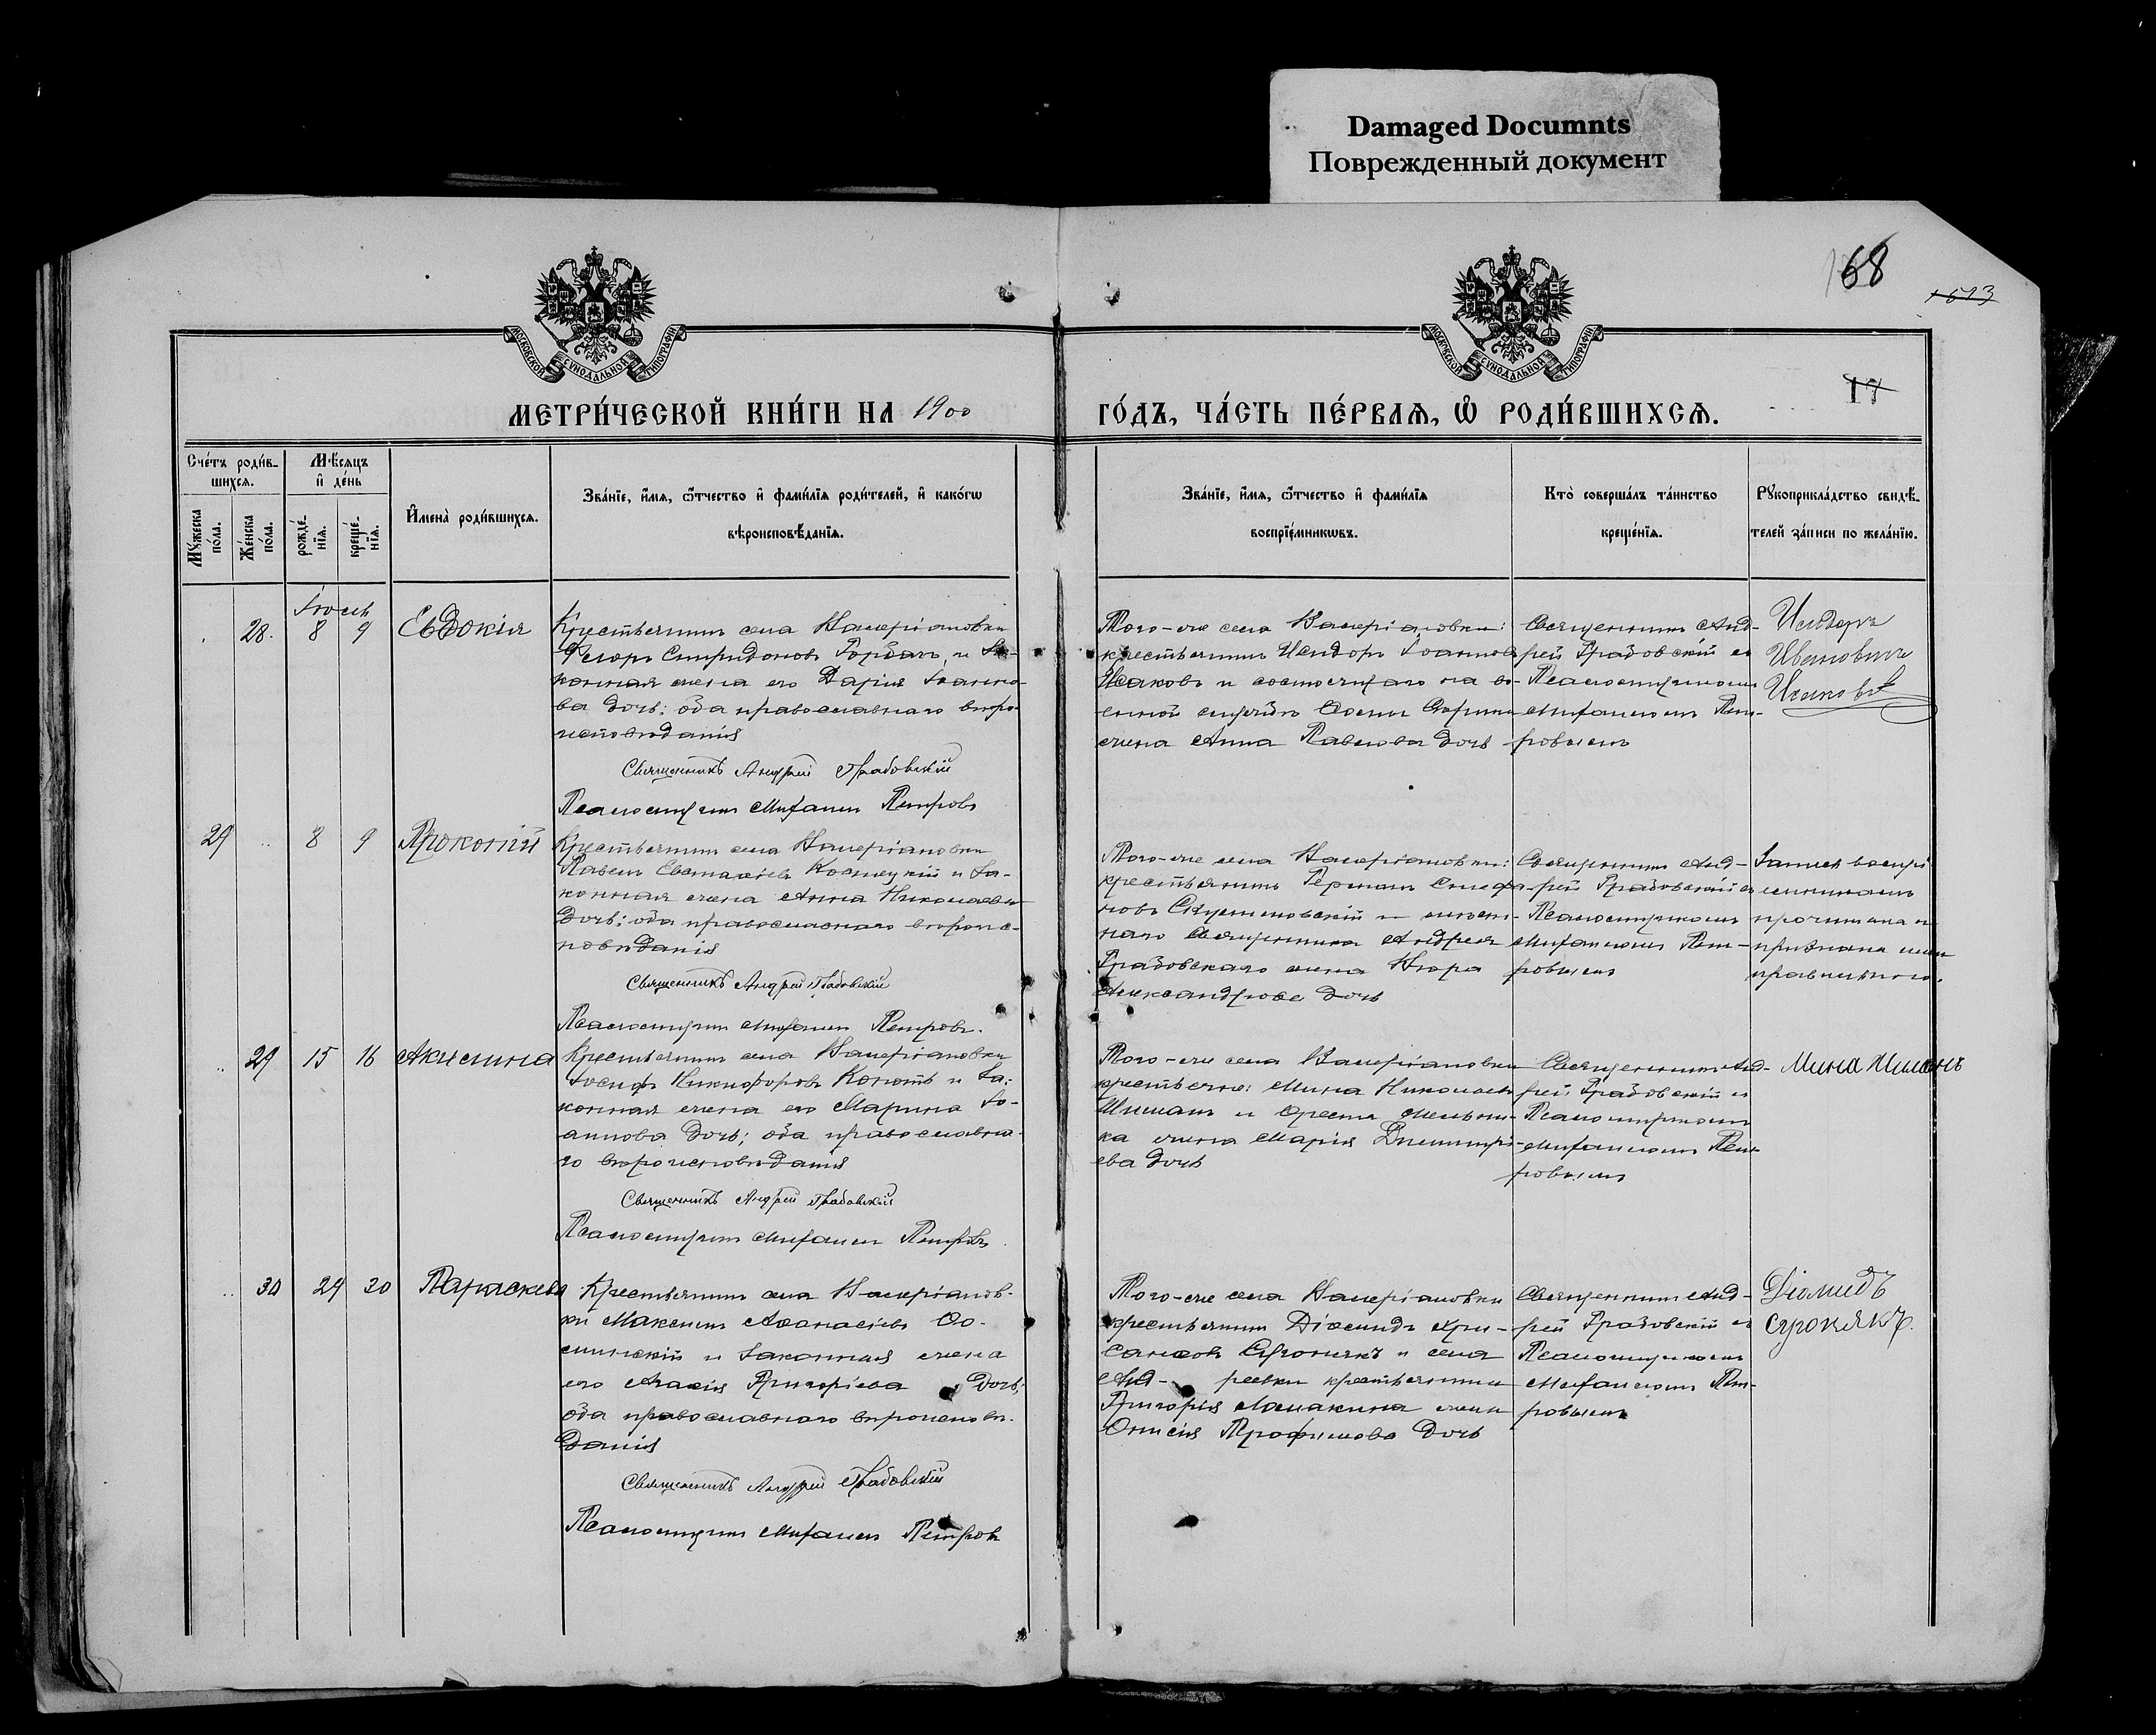 Damaged Documnts
Поврежденный документ
68
1613
17
МОСКОВСКОЙ СѴНОДАЛЬНОЙ ТИПОГРАФІИ
МОСКОВСКОЙ СѴНОДАЛЬНОЙ ТИПОГРАФІИ
МЕТРИ́ЧЕСКОЙ КНИ́ГИ НА 1900
ГО́ДЪ, ЧА́СТЬ ПЕ́РВАѦ, Ѡ҆ РОДИ́ВШИХСѦ.
Сче́тъ роди́в-
шихсѧ.
Мѣ́сѧцъ
и҆ де́нь
Мꙋ́жеска
по́ла.
Же́нска
по́ла.
рожде́-
нїѧ.
креще́-
нїѧ.
И҆мена̀ роди́вшихсѧ.
Зва́нїе, и҆́мѧ, ѻ҆́тчество и҆ фами́лїѧ роди́телей, и҆ како́гѡ
вѣроисповѣ́данїѧ.
Зва́нїе, и҆́мѧ, ѻ҆́тчество и҆ фами́лїѧ
воспрїе́мникѡвъ.
Кто̀ соверша́лъ та́инство
креще́нїѧ.
Рꙋкоприкла́дство свидѣ́-
телей за́писи по жела́нїю.
Іюль
28. 8 9 Евдокія
Крестьянинъ села Валеріановки
Ѳеодръ Спиридоновъ Горбачъ, и за-
конная жена его Дарія Іоанно-
ва дочь; оба православнаго вѣро-
исповѣданія
Священникъ Андрей Грабовскій
Псаломщикъ Михаилъ Петровъ
Того-же села Валеріановки:
крестьянинъ Исидоръ Іоанновъ
Исаковъ и состоящаго на во-
енной службѣ
жена Анна Павлова дочь
Священникъ Анд-
рей Грабовскій съ
Псаломщикомъ
Михаиломъ Пет-
ровымъ
Исидоръ
Ивановичъ
Исаковъ
29 8 9 Прокопій
Крестьянинъ села Валеріановки
Павелъ Евстаѳіевъ и за-
конная жена Анна Николаева
дочь; оба православнаго вѣроис-
повѣданія
Священникъ Андрей Грабовскій
Псаломщикъ Михаилъ Петровъ.
Того-же села Валеріановки:
крестьянинъ Германъ Стефа-
новъ и мѣст-
наго Священника Андрея
Грабовскаго жена
Александрова дочь
Священникъ Анд-
рей Грабовскій съ
Псаломщикомъ
Михаиломъ Пет-
ровымъ
Запись воспрі-
емникамъ
прочитана и
признана ими
правильною.
29 15 16 Акилина
Крестьянинъ села Валеріановки
Іосифъ Никифоровъ и за-
конная жена его Марина Іо-
аннова дочь; оба православна-
го вѣроисповѣданія
Священникъ Андрей Грабовскій
Псаломщикъ Михаилъ Петровъ.
Того-же села Валеріановки
крестьяне: Мина Николаевъ
Шиманъ и Ореста Мельни-
ка жена Марія Димитрі-
ева дочь
Священникъ Анд-
рей Грабовскій и
Псаломщикомъ
Михаиломъ Пет-
ровымъ
Мина Шиманъ
30 29 30 Параскева
Крестьянинъ села Валеріанов-
ки Максимъ Аѳанасіевъ
и законная жена
его Григоріева дочь;
оба православнаго вѣроисповѣ-
данія
Священникъ Андрей Грабовскій
Псаломщикъ Михаилъ Петровъ
Того-же села Валеріановки
крестьянинъ Діомидъ Хри-
санѳовъ и села
Анд- реевки крестьянина
Григорія жена
Онисія Трофимова дочь
Священникъ Анд-
рей Грабовскій съ
Псаломщикомъ
Михаиломъ Пет-
ровымъ
Діомидъ